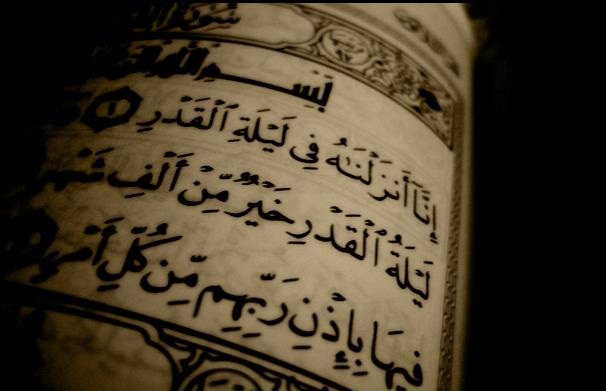 سُورَةُ
بِسْمِ ٱللَّهِ
إِنَّآ أَنزَلْنَٰهُ فِى لَيْلَةِ ٱلْقَدْرِ ١
لَيْلَةُ ٱلْقَدْرِ خَيْرٌ مِّنْ أَلْفِ شَهْرٍ
فِيهَا بِإِذْنِ رَبِّهِم مِّن كُلِّ أَمْرٍ